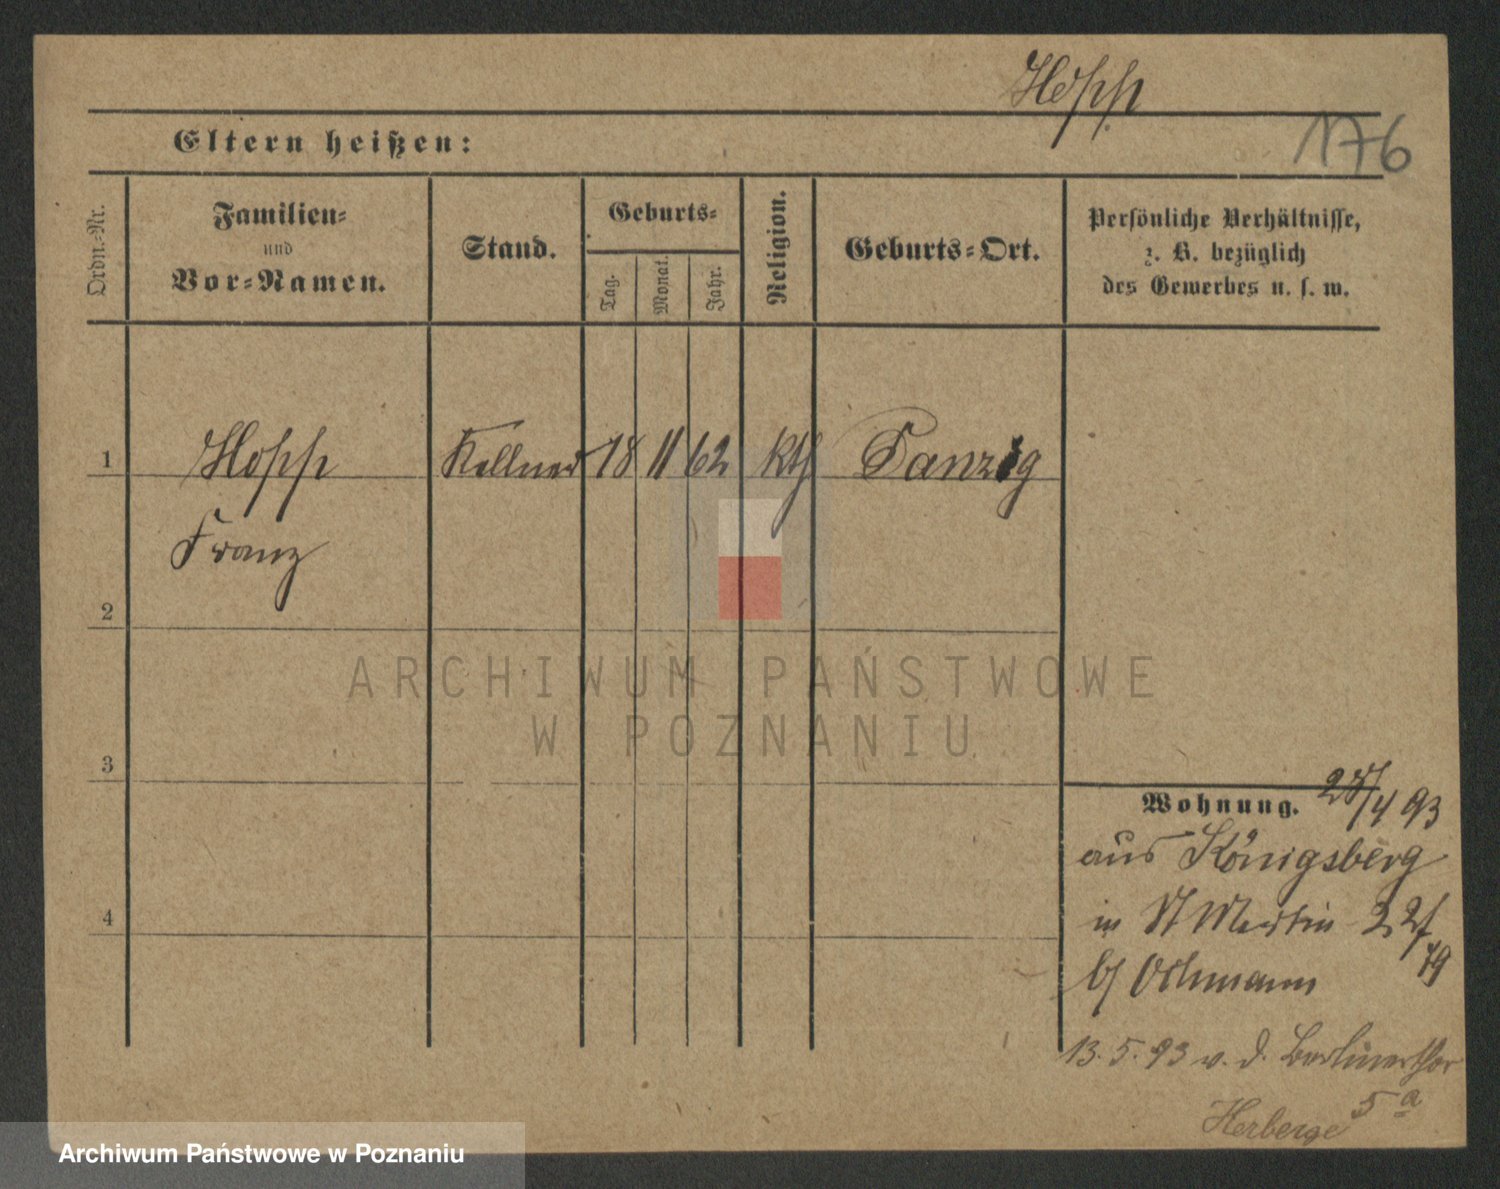 Hopp
176
Eltern heißen:
Ordn.-Nr.
Familien-
und
Vor-Namen.
Stand.
Geburts-
Tag.
Monat.
Jahr.
Religion.
Geburts-Ort.
Persönliche Verhältnisse,
z. B. bezüglich
des Gewerbes u. s. w.
1 Hopp Kellner 18 11 62 kth Danzig
Franz
2
3
4
ARCHIWUM PAŃSTWOWE
W POZNANIU
Wohnung.
/4 93
aus Königsberg
in St Martin 22/
49
b/
13. 5. 93 v. d. Berlinerthor
5a
Herberge
Archiwum Państwowe w Poznaniu